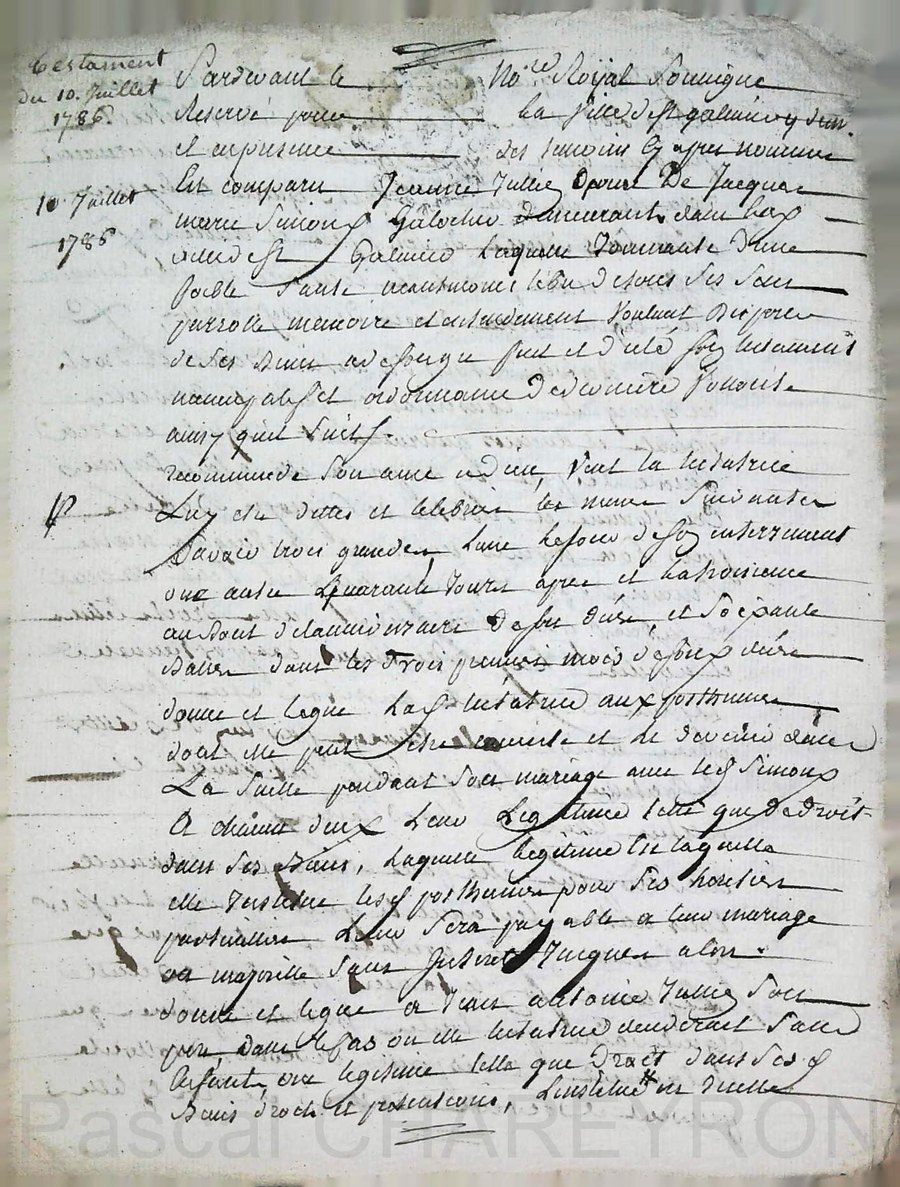 testament
du 10. Juillet
1786
10. Juillet
1786
Pardevant le No.re Royal Soussigné
Reservé pour La Ville de St galmier y
et en presence des temoins Cy apres nommés
Est comparu Jeanne Jullie Epouse De Jacques
marie Simon demeurant dans La
ville de St Galmier Laquelle Jouissante d'une
foible Santé neantmoins libre de tous Ses Sens
parrolle memoire et entendement Voulant Disposer
de Ses Biens a de Ses jour fait et dicté Son testament
nuncupatif et ordonnance De derniere Volonté
ainsy quil Suit
recommande Son ame a dieu, Veut la testatrice
Luy etre dittes et celebrées les messes Suivantes
Savoir trois grandes, L'une Le jour de Son interrement
une autre quarante Jours apres et La troisieme
au Bout de l'anniversaire de Son décès, et Soixante
Basses dans les Trois premiers mois de Son décès
donne et legue La testatrice aux posthumes
dont elle peut etre enceinte et
La Suitte pendant Son mariage avec led Simon
A chacun d'eux Leur Legitime telle que De droit
dans Ses Biens, Laquelle legitime En laquelle
elle Institue lesd posthumes pour Ses heritiers
particuliers Leur Sera payable a leur mariage
ou majorité Sans Interet Jusques alors.
donne et legue a Jean antoine Jullie Son
pere, Dans le Cas ou elle testatrice decederait Sans
Enfants une legitime telle que Droit dans Ses d
Biens droits et pretentions, L'institue en Icelle
Pascal CHAREYRON